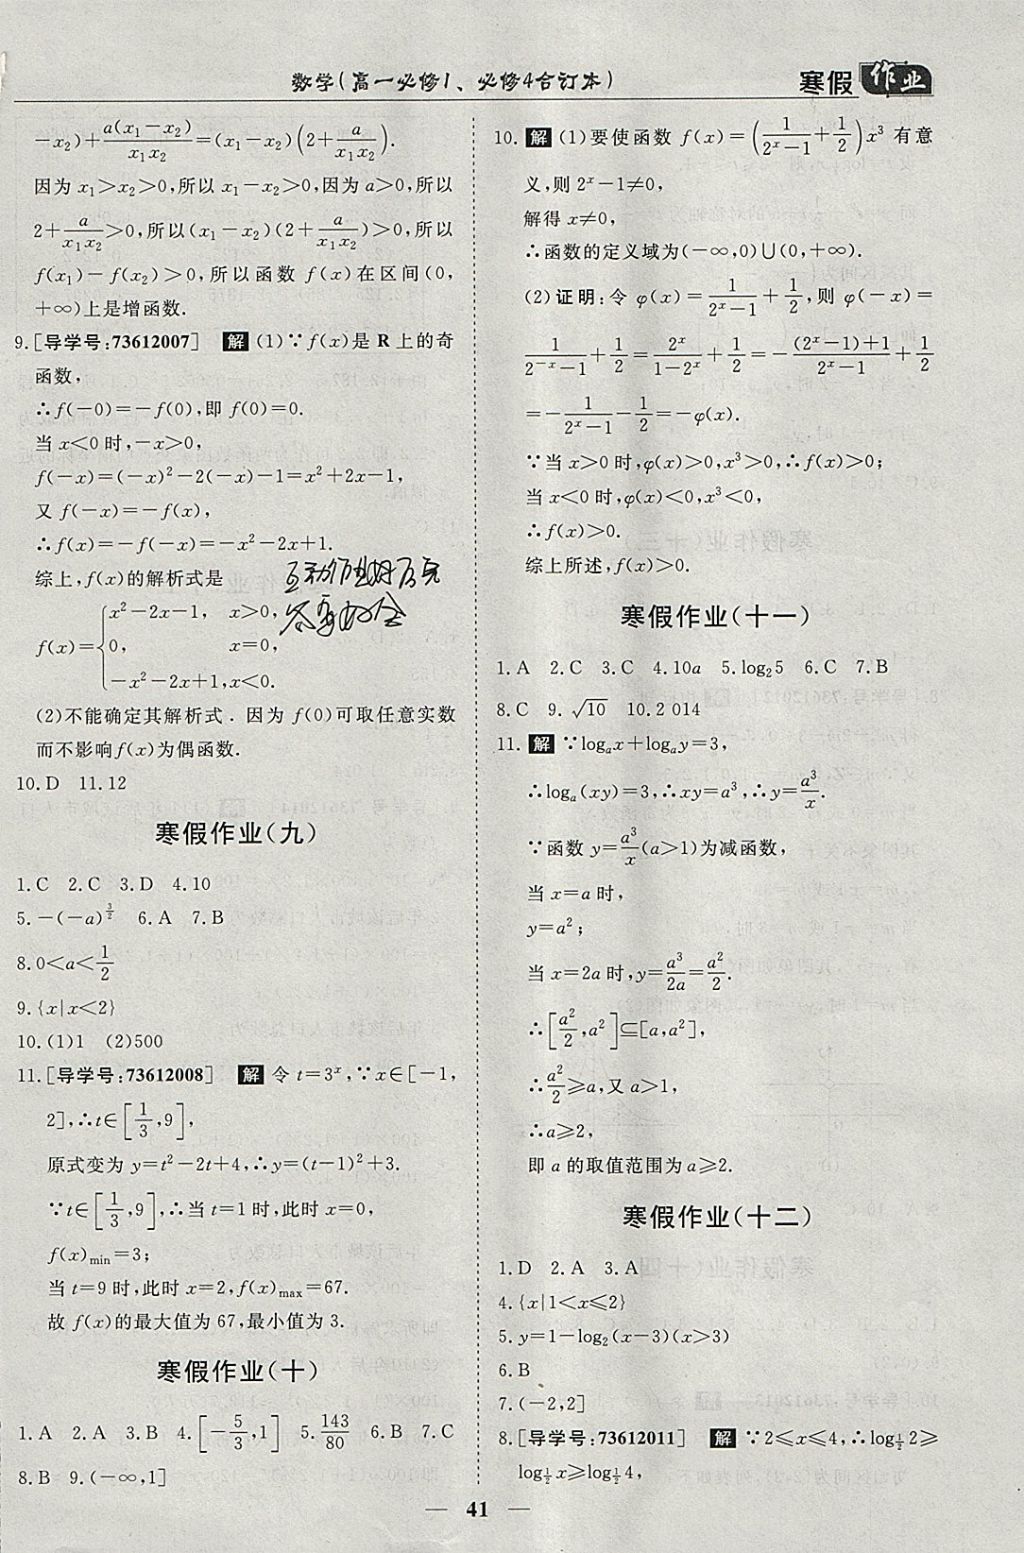 数学(高一必修1、必修4合订本)
寒假作业
-x₂)+a(x₁-x₂)/(x₁x₂)=(x₁-x₂)(2+a/(x₁x₂)).
因为x₁>x₂>0,所以x₁-x₂>0,因为a>0,所以
2+a/(x₁x₂)>0,所以(x₁-x₂)(2+a/(x₁x₂))>0,所以
f(x₁)-f(x₂)>0,所以函数f(x)在区间(0,
+∞)上是增函数.
9.[导学号:73612007] 解 (1)∵f(x)是R上的奇
函数,
∴f(-0)=-f(0),即f(0)=0.
当x<0时,-x>0,
f(-x)=(-x)²-2(-x)-1=x²+2x-1,
又f(-x)=-f(x),
∴f(x)=-f(-x)=-x²-2x+1.
综上,f(x)的解析式是
f(x)={x²-2x-1, x>0,
0, x=0,
-x²-2x+1,x<0.
(2)不能确定其解析式.因为f(0)可取任意实数
而不影响f(x)为偶函数.
10.D 11.12
寒假作业(九)
1.C 2.C 3.D 4.10
5.-(-a)^(3/2) 6.A 7.B
8.0<a<1/2
9.{x|x<2}
10.(1)1 (2)500
11.[导学号:73612008] 解 令t=3ˣ,∵x∈[-1,
2],∴t∈[1/3,9],
原式变为y=t²-2t+4,∴y=(t-1)²+3.
∵t∈[1/3,9],∴当t=1时,此时x=0,
f(x)min=3;
当t=9时,此时x=2,f(x)max=67.
故f(x)的最大值为67,最小值为3.
寒假作业(十)
1.A 2.A 3.B 4.[-5/3,1] 5.143/80 6.B 7.C
8.B 9.(-∞,1]
10.解 (1)要使函数f(x)=(1/(2ˣ-1)+1/2)x³有意
义,则2ˣ-1≠0,
解得x≠0,
∴函数的定义域为(-∞,0)∪(0,+∞).
(2)证明:令φ(x)=1/(2ˣ-1)+1/2,则φ(-x)=
1/(2⁻ˣ-1)+1/2=2ˣ/(1-2ˣ)+1/2=-((2ˣ-1)+1)/(2ˣ-1)+1/2
=-1/(2ˣ-1)-1/2=-φ(x).
∵当x>0时,φ(x)>0,x³>0,∴f(x)>0;
当x<0时,φ(x)<0,x³<0,
∴f(x)>0.
综上所述,f(x)>0.
寒假作业(十一)
1.A 2.C 3.C 4.10a 5.log₂5 6.C 7.B
8.C 9.√10 10.2 014
11.解 ∵logₐx+logₐy=3,
∴logₐ(xy)=3,∴xy=a³,∴y=a³/x.
∵函数y=a³/x(a>1)为减函数,
当x=a时,
y=a²;
当x=2a时,y=a³/2a=a²/2.
∴[a²/2,a²]⊆[a,a²],
∴a²/2≥a,又a>1,
∴a≥2,
即a的取值范围为a≥2.
寒假作业(十二)
1.D 2.A 3.A
4.{x|1<x≤2}
5.y=1-log₂(x-3)(x>3)
6.B
7.(-2,2]
8.[导学号:73612011] 解 ∵2≤x≤4,∴log_(1/2)2≥
log_(1/2)x≥log_(1/2)4,
— 41 —